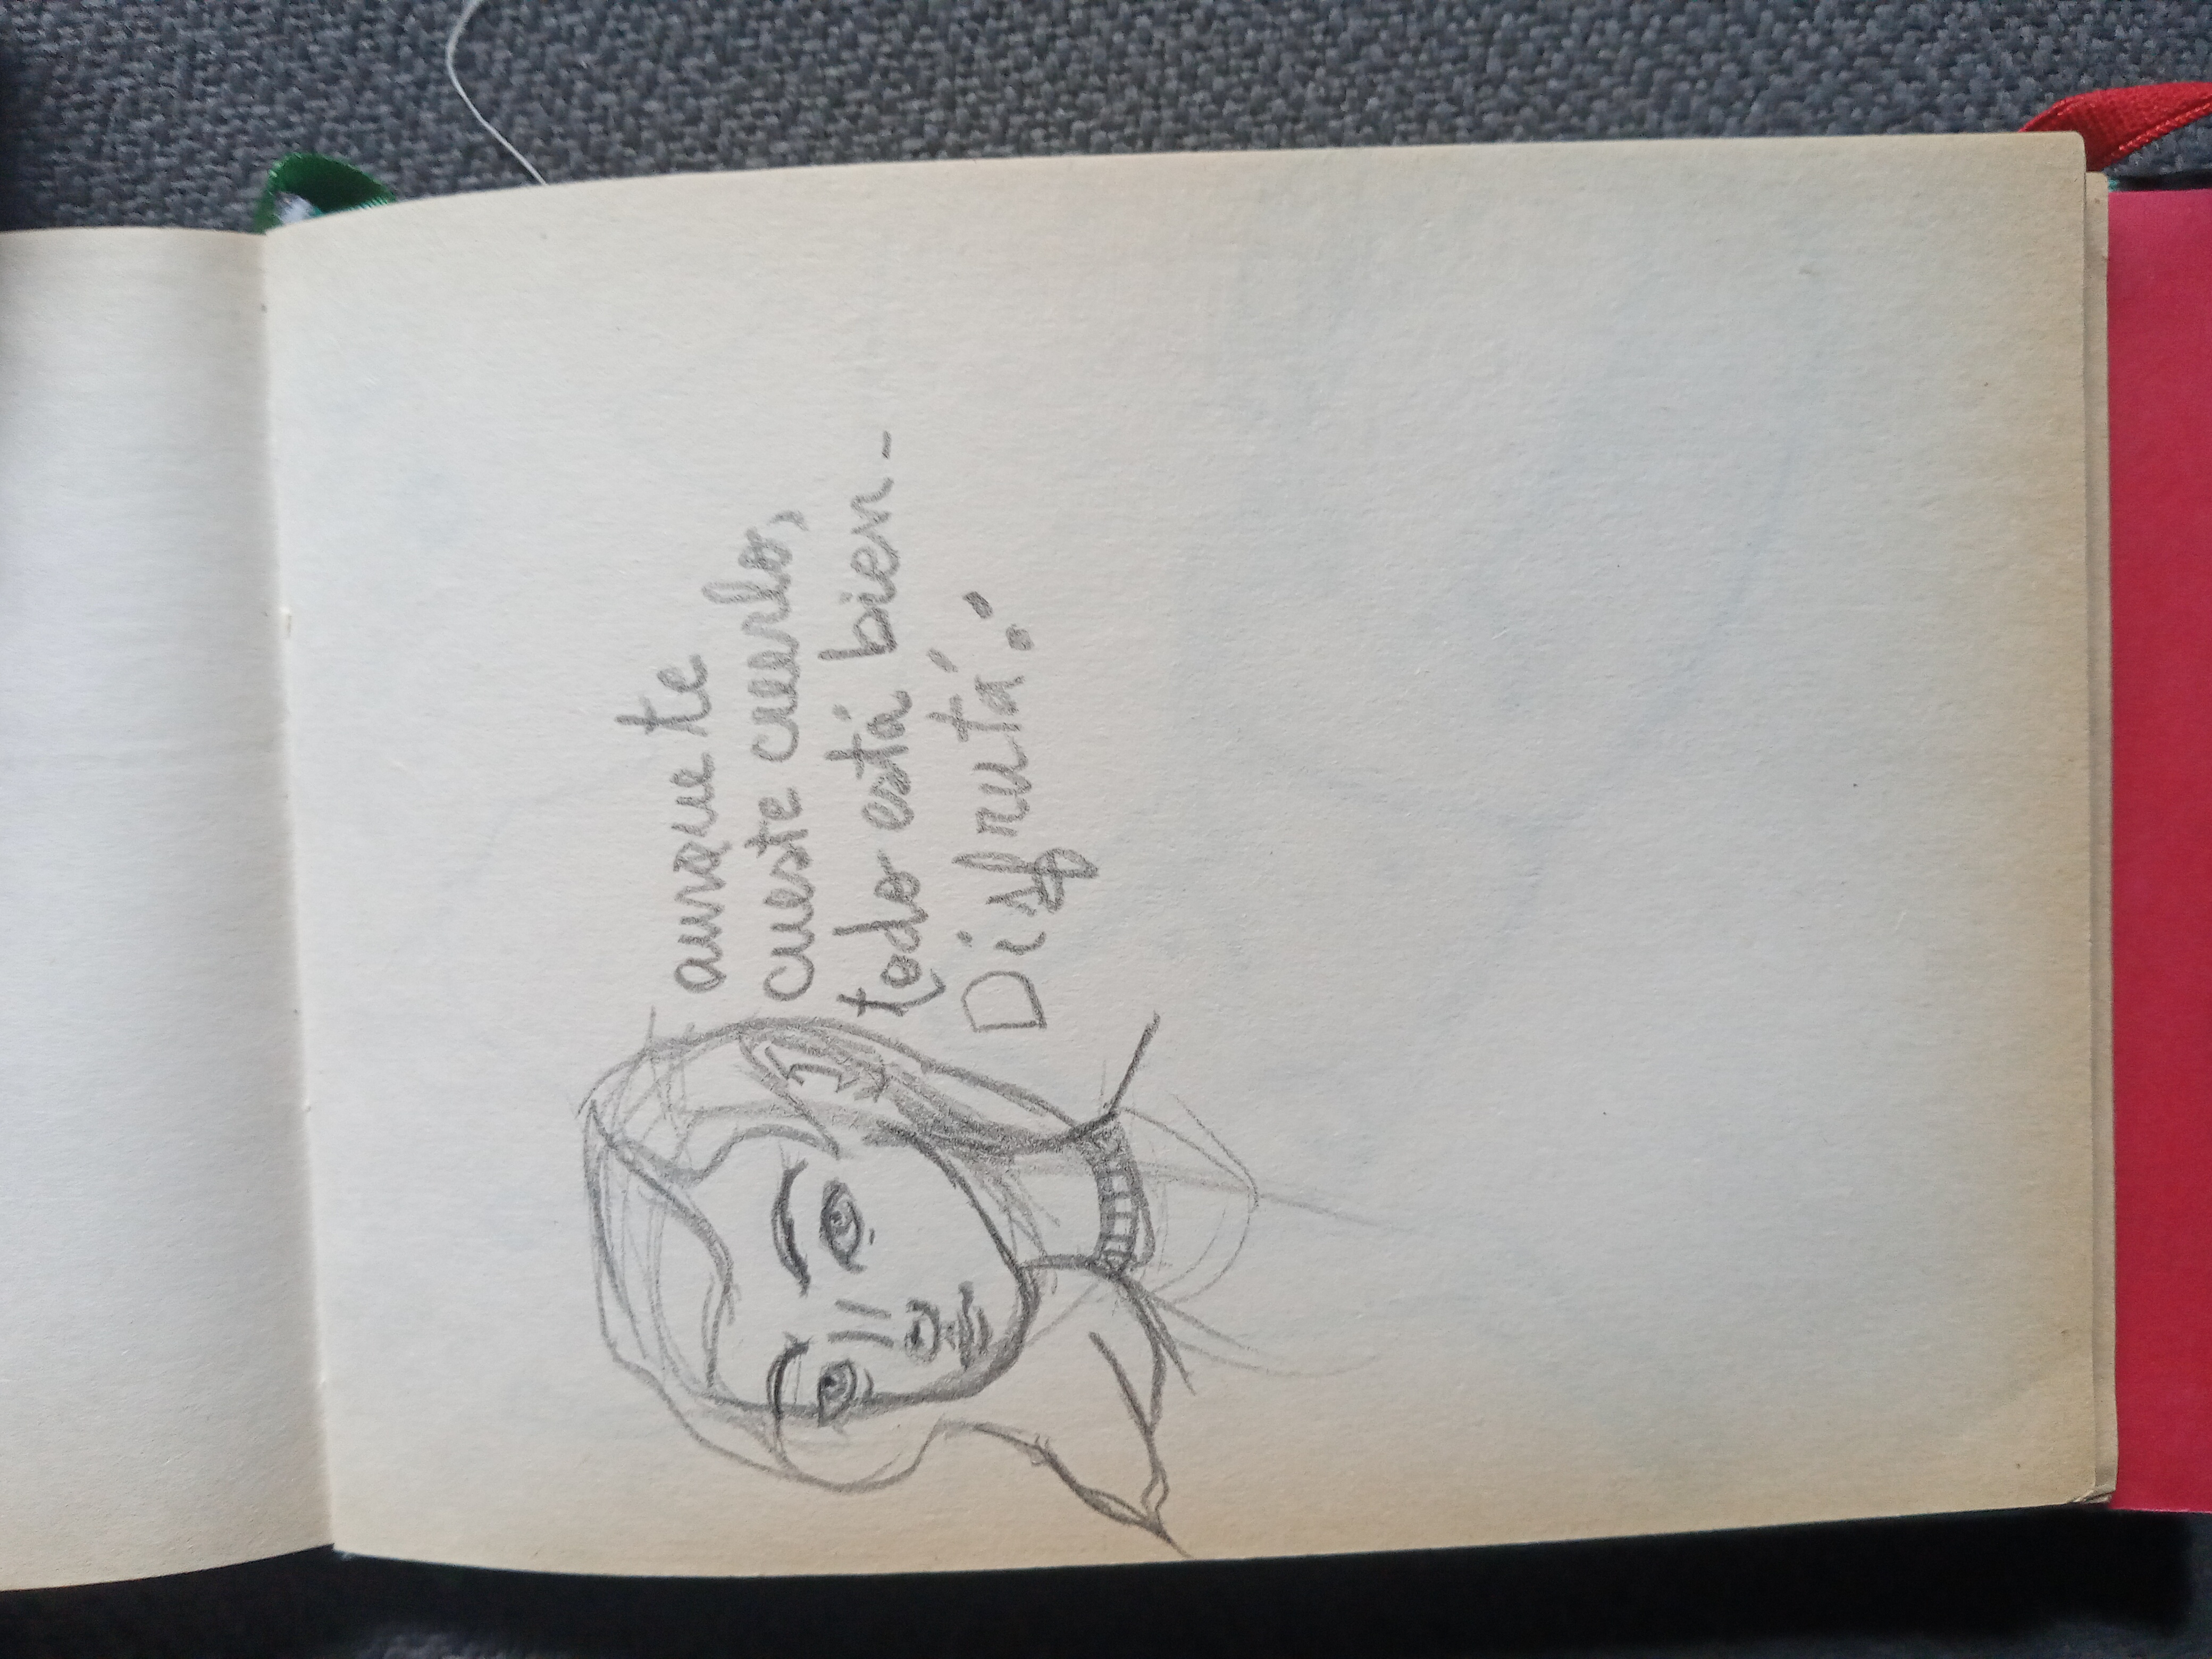 aunque te
cueste creerlo,
todo está bien -
Disfrutá :